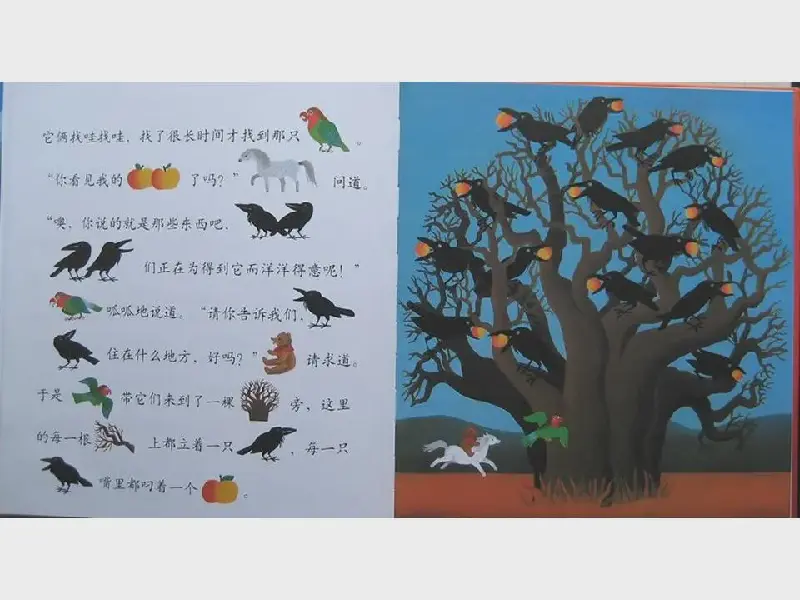 它俩找哇找哇，找了很长时间才找到那只。
“你看见我的了吗？”问道。
“噢，你说的就是那些东西吧，
们正在为得到它而洋洋得意呢！”
呱呱地说道。“请你告诉我们，
住在什么地方，好吗？”请求道。
于是带它们来到了一棵旁，这里
的每一根上都立着一只，每一只
嘴里都叼着一个。